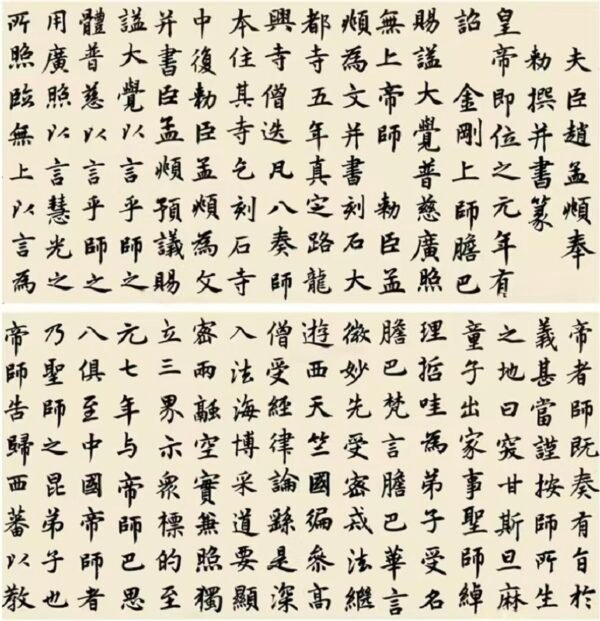 夫臣趙孟頫奉
勑撰并書篆
皇帝即位之元年有
詔 金剛上師膽巴
賜謚大覺普慈廣照
無上帝師 勑臣孟
頫為文并書刻石大
都寺五年真定路龍
興寺僧迭凡八奏師
本住其寺乞刻石寺
中復勑臣孟頫為文
并書臣孟頫預議賜
謚大覺以言乎師之
體普慈以言乎師之
用廣照以言慧光之
所照臨無上以言為
帝者師既奏有旨於
義甚當謹按師所生
之地曰突甘斯旦麻
童子出家事聖師綽
理哲哇為弟子受名
膽巴梵言膽巴華言
微妙先受密戒法繼
遊西天竺國徧參高
僧受經律論繇是深
入法海博采道要顯
密兩融空實兼照獨
立三界示眾標的至
元七年與帝師巴思
八俱至中國帝師者
乃聖師之昆弟子也
帝師告歸西蕃以教